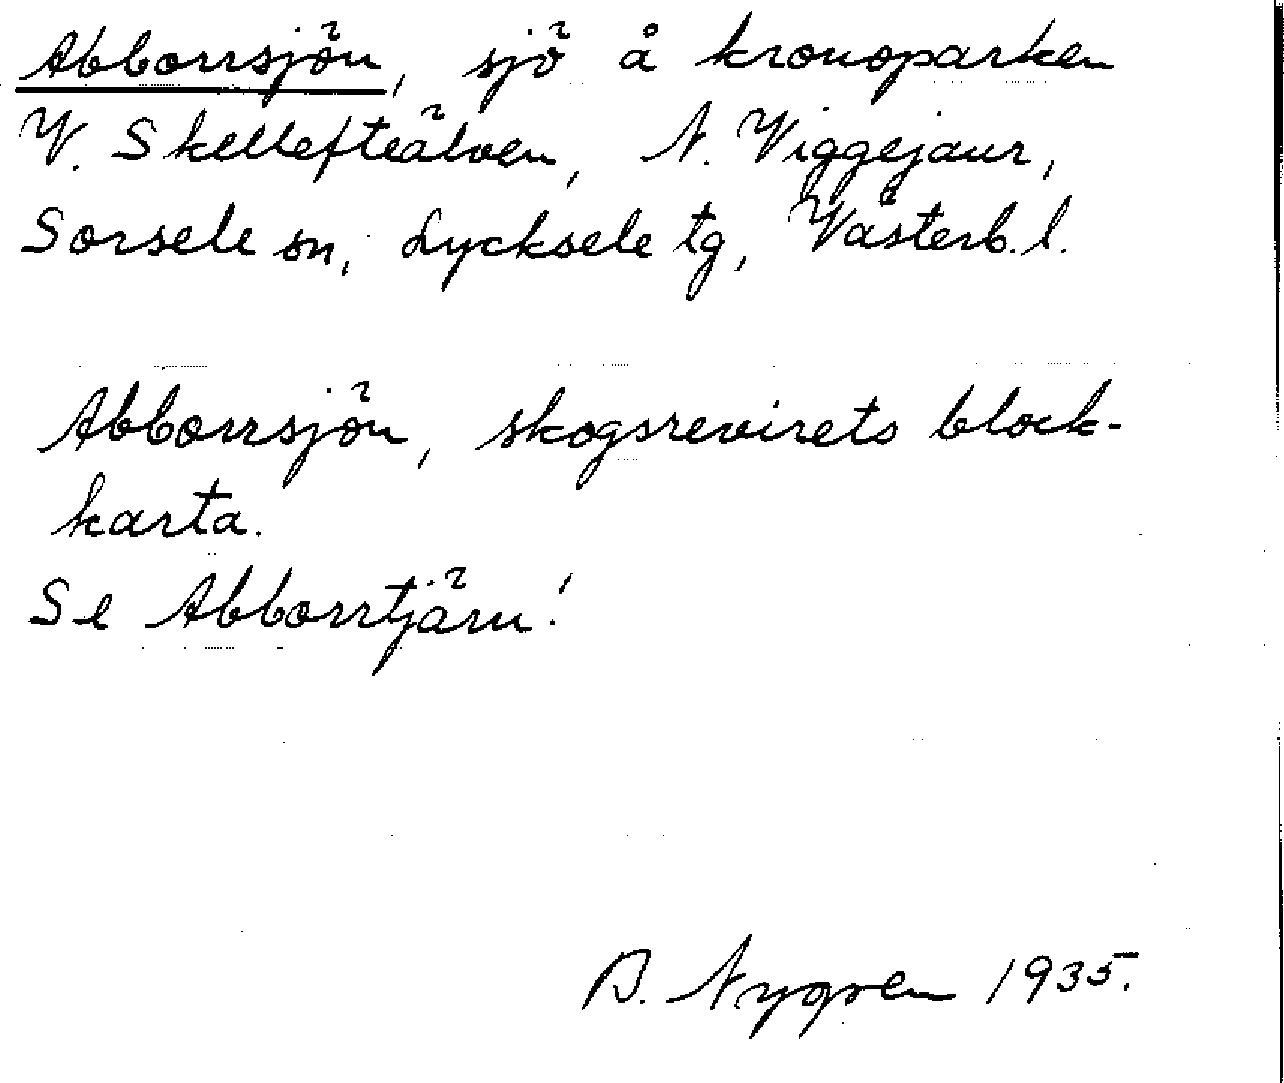 Abborrsjön, sjö å kronoparken
V. Skellefteälven, N. Viggejaur,
Sorsele sn, Lycksele tg, Västerb. l.
Abborrsjön, skogsrevirets block-
karta.
Se Abborrtjärn!
B. Nygren 1935.